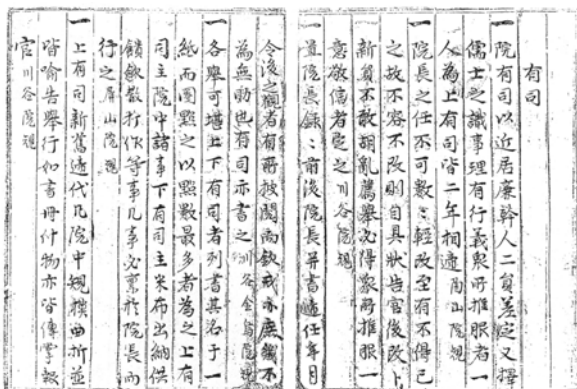 有司
一 院有司以近居廉幹人二員差定又擇
儒士之識事理有行義衆所推服者一
人為上有司皆二年相遞 陶山院規
一 院長之任不可數〻輕改至有不得已
之故不容不改則自具狀告官後改卜
新員不敢胡亂薦擧必得衆所推服一
意敬信者爲之 川谷院規
一 置院長錄〻前後院長并書遞任年月
令後之觀者有所披閱而欽戒亦庶幾不
為無助也有司亦書之 川谷金烏院規
一 各擧可堪上下有司者列書其名于一
紙而圈點之以點數最多者為之上有
司主院中諸事下有司主米布出納供
饋斂散打作等事凡事必禀於院長而
行之 屏山院規
一 上有司新舊遞代凡院中規模曲折並
皆喩告擧行如書冊什物亦皆傳掌報
官 川谷院規